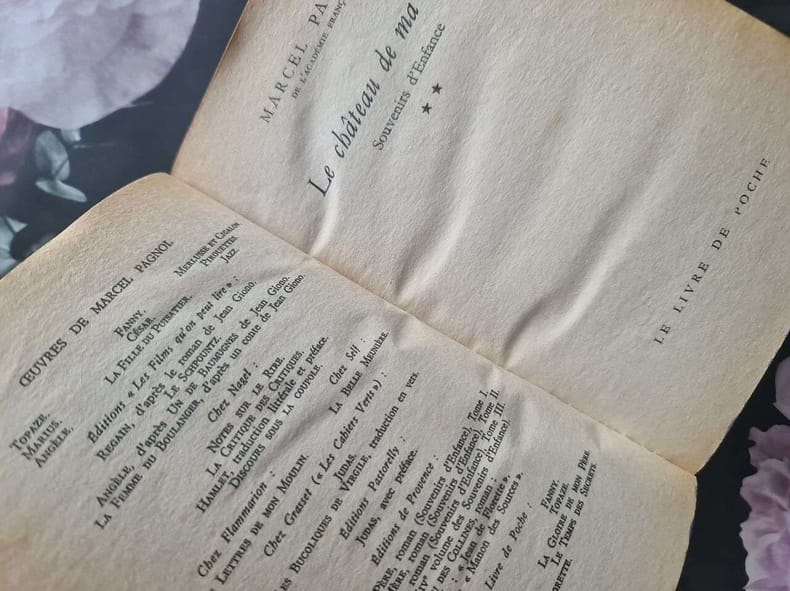 ŒUVRES DE MARCEL PAGNOL
TOPAZE. FANNY. MERLUSSE ET CIGALON
MARIUS. CÉSAR. PIROUETTES.
ANGÈLE. LA FILLE DU PUISATIER. JAZZ.
Éditions « Les Films qu'on peut lire » :
REGAIN, d'après le roman de Jean Giono.
LE SCHPOUNTZ.
ANGÈLE, d'après UN DE BAUMUGNES de Jean Giono.
LA FEMME DU BOULANGER, d'après un conte de Jean Giono.
Chez Nagel :
NOTES SUR LE RIRE.
LA CRITIQUE DES CRITIQUES.
HAMLET, traduction littérale et préface.
DISCOURS SOUS LA COUPOLE.
Chez Flammarion : Chez Self :
LETTRES DE MON MOULIN. LA BELLE MEUNIÈRE.
Chez Grasset (« Les Cahiers Verts ») :
JUDAS.
ES BUCOLIQUES DE VIRGILE, traduction en vers.
Éditions Pastorelly :
JUDAS, avec préface.
Éditions de Provence :
PÈRE, roman (Souvenirs d'Enfance), Tome I.
ÈRE, roman (Souvenirs d'Enfance), Tome II.
roman (Souvenirs d'Enfance), Tome III
volume des Souvenirs d'Enfance)
DES COLLINES, roman :
: « Jean de Florette ».
« Manon des Sources ».
Livre de Poche :
FANNY.
TOPAZE.
LA GLOIRE DE MON PÈRE
LE TEMPS DES SECRETS.
MARCEL PA
DE L'ACADÉMIE FRANÇ
Le château de ma
Souvenirs d'Enfance
★★
LE LIVRE DE POCHE